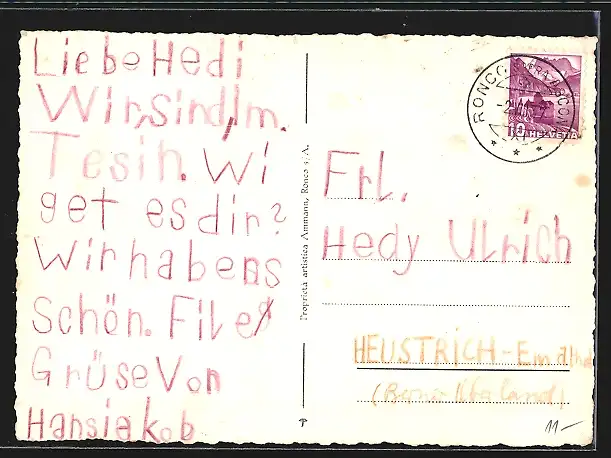 Liebe Hedi
Wir sind Im.
Tesin. Wi
get es dir?
Wir haben s
schön. File
Grüse Von
Hansiakob
Proprietà artistica Ammann, Ronco s. A.
RONCO
10 HELVETIA
Frl.
Hedy Ulrich
HEUSTRICH-Emdthal
11-